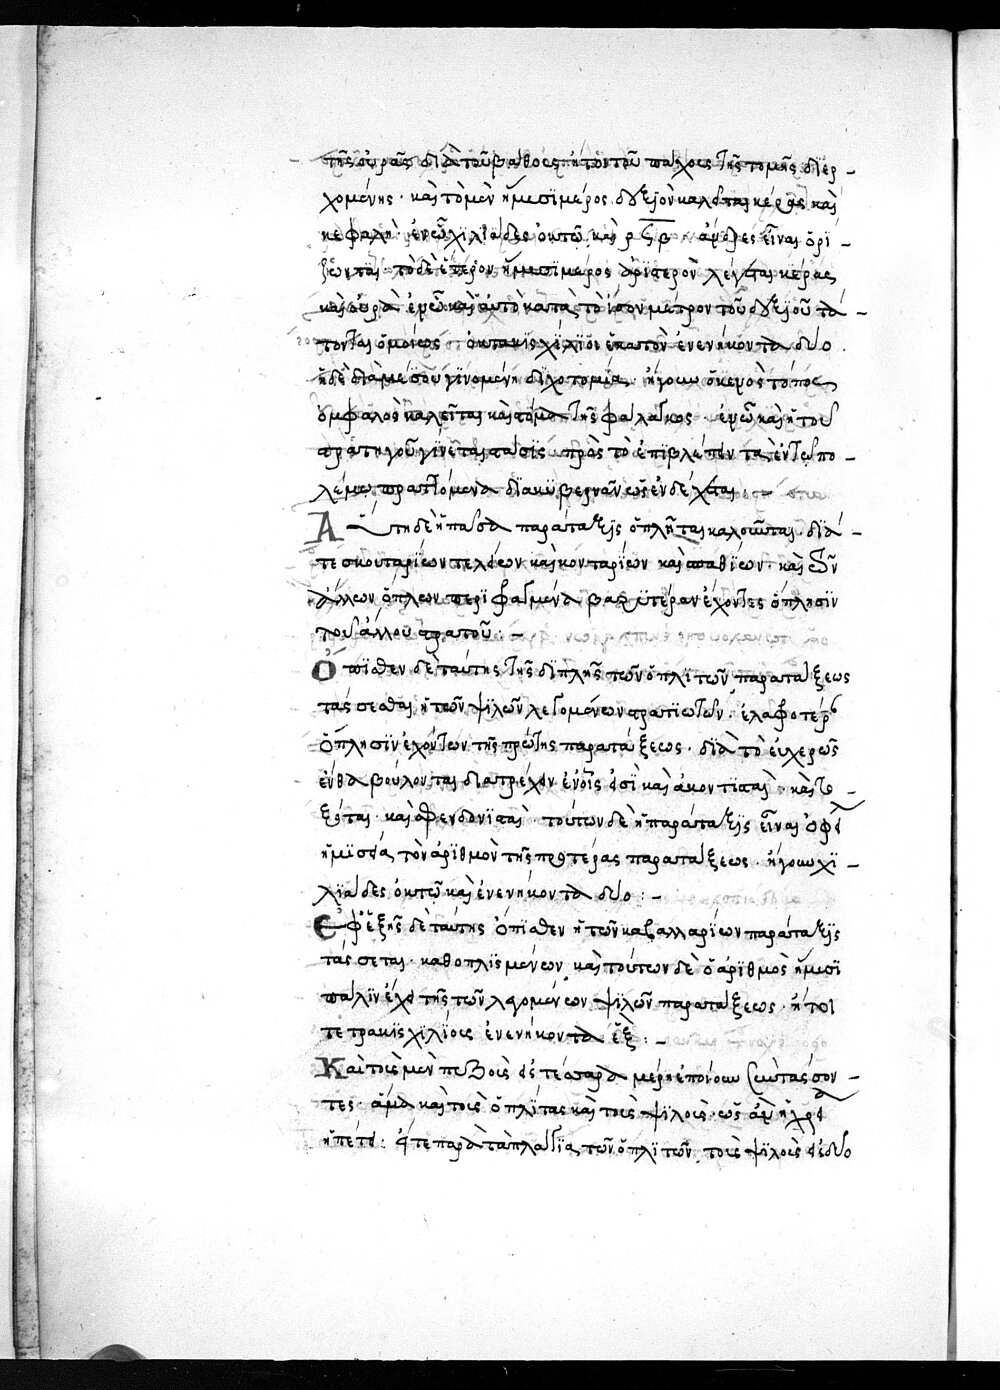 τῆς οὐρᾶς διὰ τοῦ βάθους ἤτοι τοῦ πάχους τῆς τομῆς διερ -
χομένης · καὶ τὸ μὲν ἡμεσιμέρος δεξιὸν καλεῖται κέρας καὶ
κεφαλὴ · ἐν ᾧ χιλιάδες ὀκτὼ καὶ ρϟβ · ἄνδρες εἶναι ὁρί -
ζονται · τὸ δὲ ἕτερον ἡμεσιμέρος ἀριστερὸν λέγεται κέρας
καὶ οὐρὰ ἐν ᾧ καὶ αὐτὸ κατὰ τὸ ἴσον μέτρον τοῦ δεξιοῦ τά -
τονται ὁμοίως · ὀκτακισχίλιοι ἑκατὸν ἐνενήκοντα δύο .
ἡ δὲ διὰ μέσου γινομένη διχοτομία · ἤγουν ὁ κενὸς τόπος
ὀμφαλὸς καλεῖται καὶ στόμα τῆς φάλαγγος · ἐν ᾧ καὶ ἡ τοῦ
στρατηγοῦ γίνεται στάσις πρὸς τὸ ἐπιβλέπειν τὰ ἐν τῷ πο -
λέμῳ πραττόμενα διακυβερνᾶν ὡς ἐνδέχεται
Αὕτη δὲ ἡ πᾶσα παράταξις ὁπλῆται καλοῦνται διά -
τε σκουταρίων τελείων καὶ κονταρίων καὶ σπαθίων · καὶ τῶν
ἄλλων ὅπλων περιφαγμένα βαρυτέραν ἔχοντες ὅπλησιν
τοῦ ἄλλου στρατοῦ : -
Ὄπισθεν δὲ ταύτης τῆς διπλῆς τῶν ὁπλιτῶν παρατάξεως
τάσσεσθαι ἡ τῶν ψιλῶν λεγομένων στρατιωτῶν · ἐλαφοτέραν
ὅπλησιν ἐχόντων τῆς πρώτης παρατάξεως · διὰ τὸ εὐχερῶς
ἔνθα βούλονται διατρέχειν ἐν οἷς εἰσὶ καὶ ἀκοντισταὶ · καὶ το -
ξόται · καὶ σφενδονισταὶ · τούτων δὲ ἡ παράταξις εἶναι ὀφεί
ἡμίσεια τὸν ἀριθμὸν τῆς προτέρας παρατάξεως · ἤγουν χι -
λιάδες ὀκτὼ καὶ ἐνενήκοντα δύο : -
Ἐφεξῆς δὲ ταύτης ὄπισθεν ἡ τῶν καβαλλαρίων παράταξις
τάσσεται · καθοπλισμένων · καὶ τούτων δὲ ὁ ἀριθμὸς ἡμεσι
πάλιν ἔχει τῆς τῶν λεγομένων ψιλῶν παρατάξεως · ἤτοι
τετρακισχιλίους ἐνενήκοντα ἕξ : -
Καὶ τοὺς μὲν πεζοὺς εἰς τέσσαρα μέρη ἐποίουν συντάσσον -
τες · ἅμα καὶ τοὺς ὁπλίτας καὶ τοὺς ψιλοὺς · ὡς ἂν ἡ χρεία
ἠπείγει : εἴτε παρὰ τὰ πλάγια τῶν ὁπλιτῶν τοὺς ψιλοὺς εἰς δύο